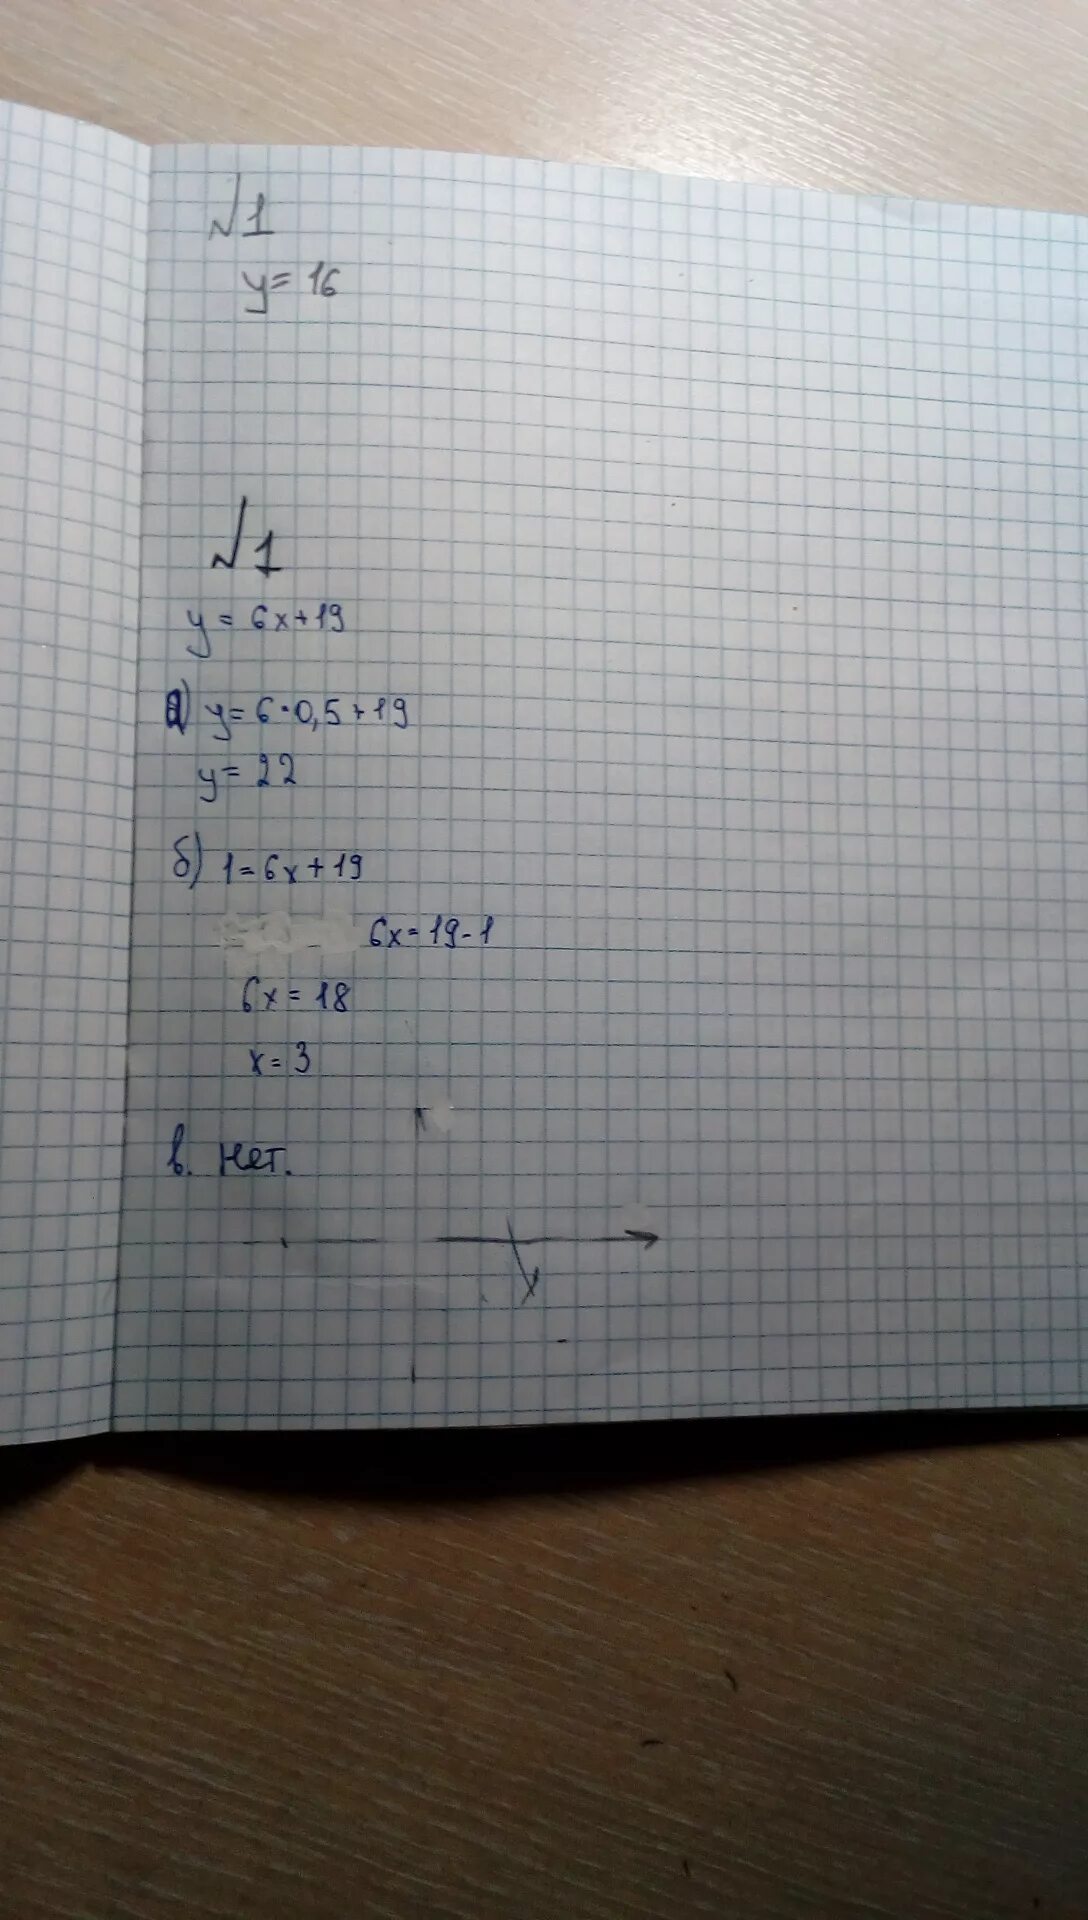 №1
y = 16
№1
y = 6x + 19
а) y = 6 · 0,5 + 19
y = 22
б) 1 = 6x + 19
6x = 19 - 1
6x = 18
x = 3
в. Нет.